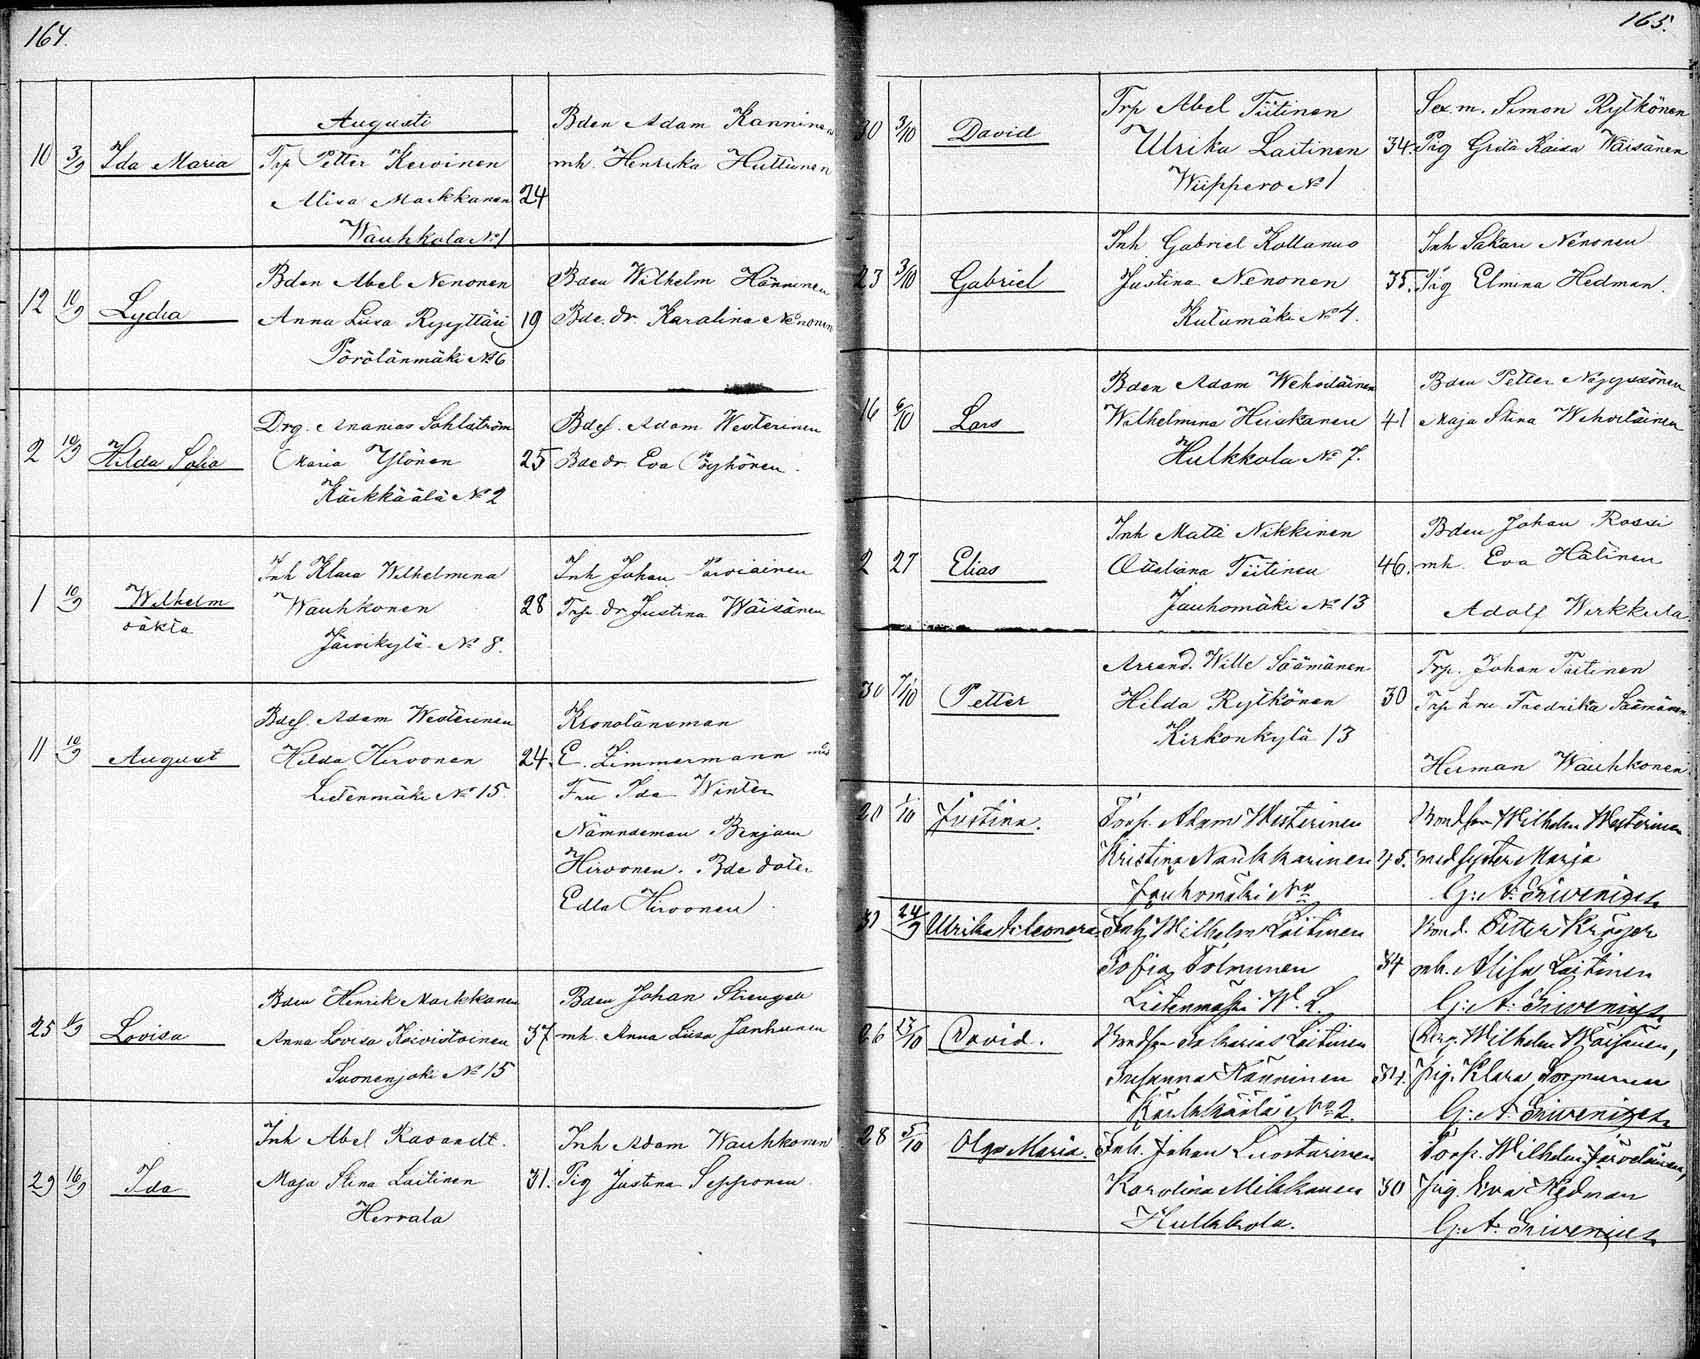 164.
Augusti
10 3/9 Ida Maria Trp Petter Kervinen Bden Adam Kanninen
Alisa Markkanen 24 mh. Henrika Huttunen
Wauhkola No 1
12 10/9 Lydia Bden Abel Nenonen Bden Wilhelm Hänninen
Anna Liisa Ryyttäri 19 Bde. dr. Karolina Nenonen
Pörölänmäki No 6
2 10/9 Hilda Sofia Drg. Ananias Sahlström Bdes. Adam Westerinen
Maria Ylönen 25 Bde dr. Eva Pöyhönen.
Kärkkäälä No 2
1 10/9 Wilhelm Inh Klara Wilhelmina Inh Johan Parviainen
oäkta Wauhkonen 28 Trp dr Justina Wäisänen
Järvikylä No 8.
11 10/9 August Bdes. Adam Westerinen Kronolänsman
Hilda Hirvonen 24. E. Zimmermann
Lietenmäki No 15. Fru Ida Winter
Nämndeman Benjam
Hirvonen. Bde doter
Edla Hirvonen.
25 /9 Lovisa Bden Henrik Markkanen Bden Johan Strengell
Anna Lovisa Koivistoinen 37 mh. Anna Liisa Janhunen
Suonenjoki No 15
29 16/9 Ida Inh Abel Ravandt. Inh Adam Wauhkonen
Maja Stina Laitinen 31. Pig Justina Sepponen
Herrala
165.
30 3/10 David Trp Abel Tiitinen Sex.m. Simon Rytkönen
Ulrika Laitinen 34. Pig Greta Kaisa Wäisänen
Wiippero No 1
23 3/10 Gabriel Inh Gabriel Kollanus Inh Sakari Nenonen
Justina Nenonen 35. Pig Elmina Hedman.
Kutumäki No 4.
16 6/10 Lars Bden Adam Wehviläinen Bden Petter Noyssönen
Wilhelmina Heiskanen 41 Maja Stina Wehviläinen
Hulkkola No 7.
2 27 Elias Inh Matti Nikkinen Bden Johan Rossi
Tiitinen 46. mh. Eva Hätinen
Jauhomäki No 13 Adolf Wirkkula.
30 7/10 Petter Arrend. Wille Säämänen Trp. Johan Tiitinen
Hilda Rytkönen 30 Trp hru Fredrika Säämänen
Kirkonkylä 13
Herman Wauhkonen
20 1/10 Justina. Torp. Adam Westerinen Bondson Wilhelm Westerinen
Kristina Naukkarinen 45. med syster Marja
Jauhomäki No G: A: Snivenius
31 24/9 Ulrika Eleonora Inh. Wilhelm Laitinen Bond. Petter Kröger
Sofia Tolmunen 34 mh. Alisa Laitinen
Lietenmäki G: A: Snivenius
26 13/10 David. Bondson Sakarias Laitinen Dräng. Wilhelm Wäisänen,
Susanna Känninen 34. pig. Klara Sormunen
Kärkkäälä No 2. G: A: Snivenius
28 5/10 Olga Maria. Inh. Johan Luostarinen Torp. Wilhelm Järveläinen,
Karolina Mikkanen 30 pig. Eva Hedman
Hulkkola. G: A: Snivenius